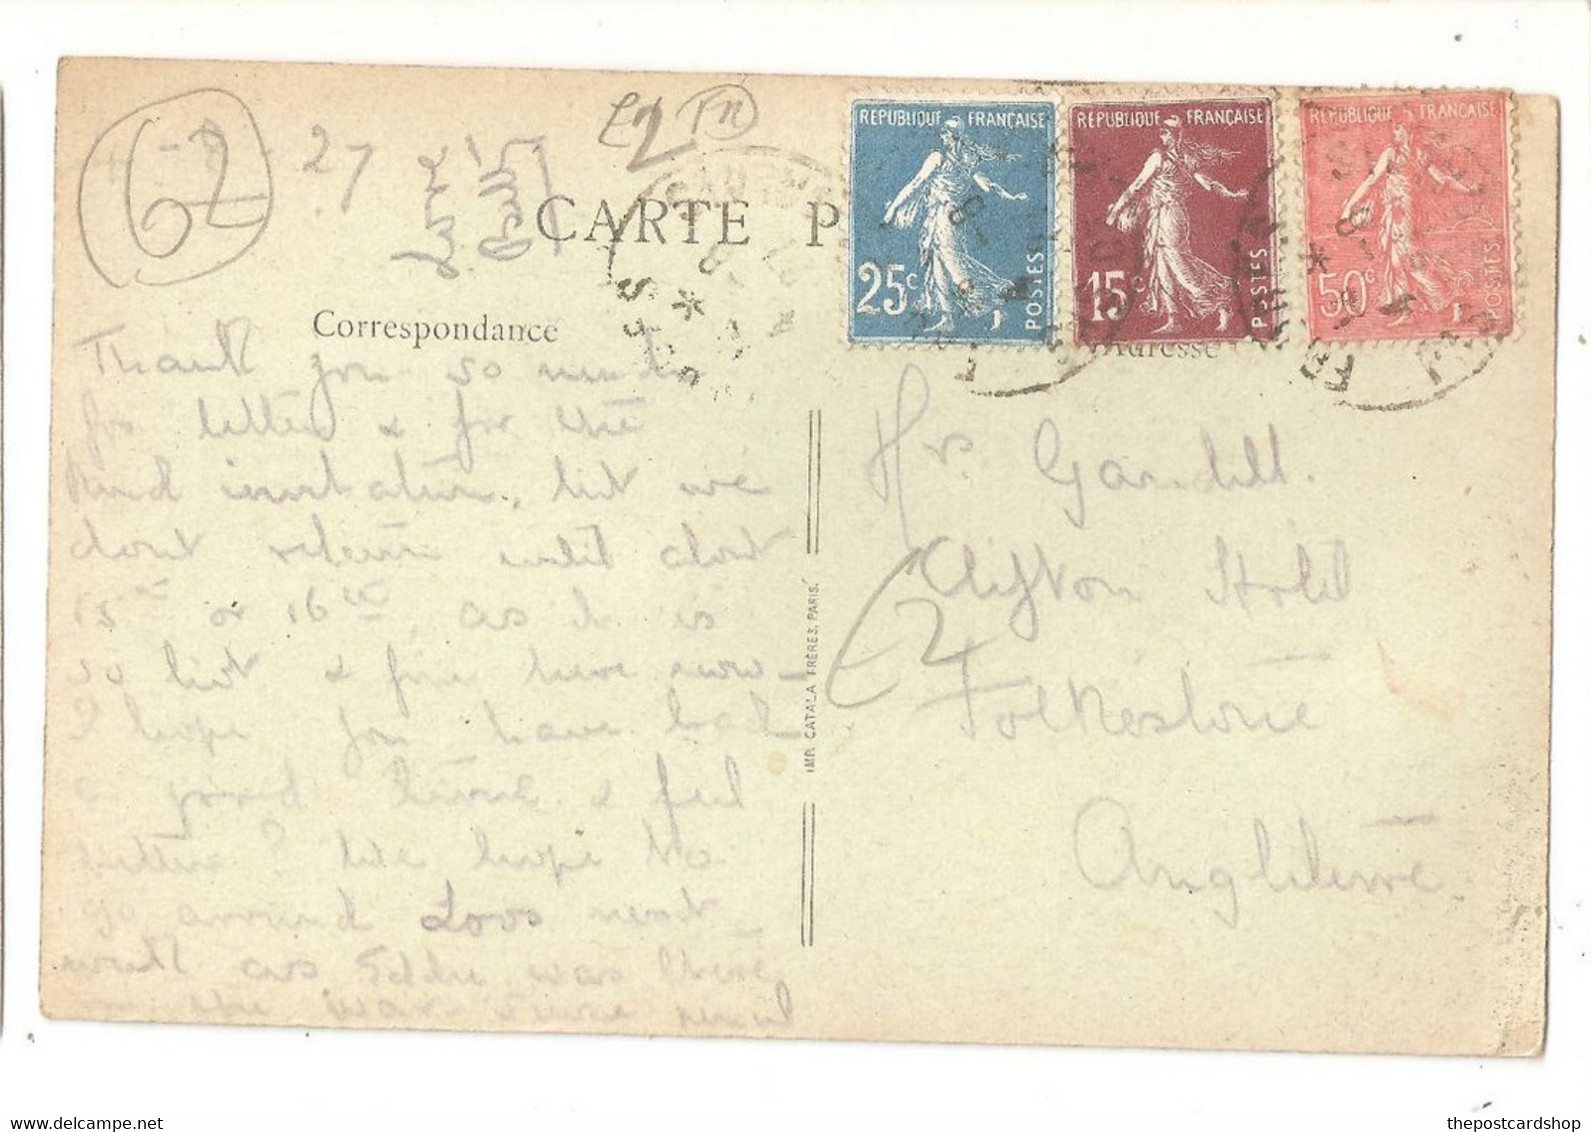 62
27
£2 Fn
CARTE P
RÉPUBLIQUE FRANÇAISE
25c
POSTES
RÉPUBLIQUE FRANÇAISE
15c
POSTES
RÉPUBLIQUE FRANÇAISE
50c
POSTES
Correspondance
Adresse
Thank you so much
for letter & for the
kind invitation, but we
dont return until about
15th or 16th as it is
so hot & fine here now—
I hope you have had
a good time & feel
better? We hope to
go around Loos next
week as Eddie was there
in the war. Excuse pencil
IMP. CATALA FRÈRES, PARIS.
Mrs. Gandell.
Clifton Hotel
£2
Folkestone
Angleterre
thepostcardshop